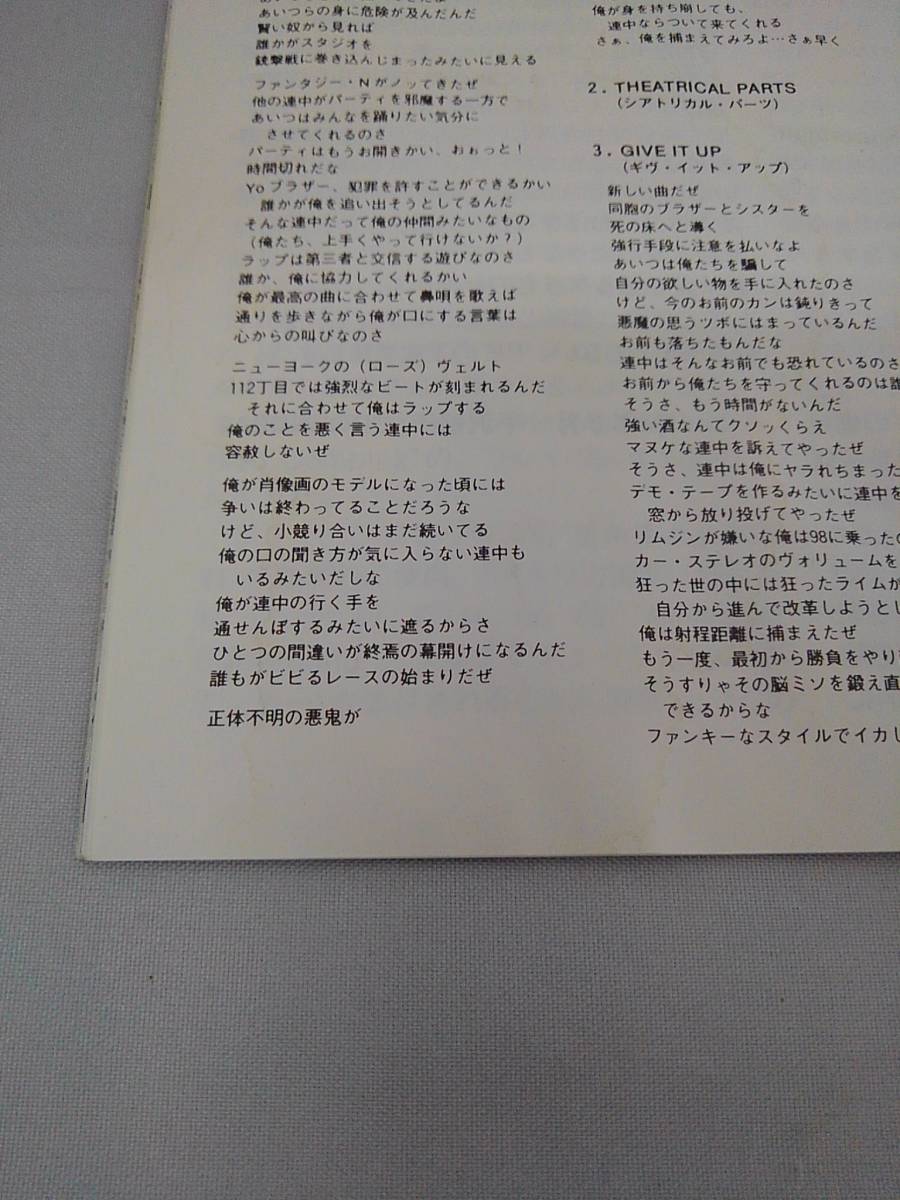 あいつらの身に危険が及んだんだ
賢い奴から見れば
誰かがスタジオを
銃撃戦に巻き込んじまったみたいに見える
ファンタジー・Nがノッてきたぜ
他の連中がパーティを邪魔する一方で
あいつはみんなを踊りたい気分に
させてくれるのさ
パーティはもうお開きかい、おぉっと!
時間切れだな
Yoブラザー、犯罪を許すことができるかい
誰かが俺を追い出そうとしてるんだ
そんな連中だって俺の仲間みたいなもの
(俺たち、上手くやって行けないか?)
ラップは第三者と交信する遊びなのさ
誰か、俺に協力してくれるかい
俺が最高の曲に合わせて鼻唄を歌えば
通りを歩きながら俺が口にする言葉は
心からの叫びなのさ
ニューヨークの(ローズ)ヴェルト
112丁目では強烈なビートが刻まれるんだ
それに合わせて俺はラップする
俺のことを悪く言う連中には
容赦しないぜ
俺が肖像画のモデルになった頃には
争いは終わってることだろうな
けど、小競り合いはまだ続いてる
俺の口の聞き方が気に入らない連中も
いるみたいだしな
俺が連中の行く手を
通せんぼするみたいに遮るからさ
ひとつの間違いが終焉の幕開けになるんだ
誰もがビビるレースの始まりだぜ
正体不明の悪鬼が
俺が身を持ち崩しても、
連中ならついて来てくれる
さぁ、俺を捕まえてみろよ…さぁ早く
2. THEATRICAL PARTS
(シアトリカル・パーツ)
3. GIVE IT UP
(ギヴ・イット・アップ)
新しい曲だぜ
同胞のブラザーとシスターを
死の床へと導く
強行手段に注意を払いなよ
あいつは俺たちを騙して
自分の欲しい物を手に入れたのさ
けど、今のお前のカンは鈍りきって
悪魔の思うツボにはまっているんだ
お前も落ちたもんだな
連中はそんなお前でも恐れているのさ
お前から俺たちを守ってくれるのは誰
そうさ、もう時間がないんだ
強い酒なんてクソッくらえ
マヌケな連中を訴えてやったぜ
そうさ、連中は俺にヤラれちまった
デモ・テープを作るみたいに連中を
窓から放り投げてやったぜ
リムジンが嫌いな俺は98に乗ったの
カー・ステレオのヴォリュームを
狂った世の中には狂ったライムが
自分から進んで改革しようとし
俺は射程距離に捕まえたぜ
もう一度、最初から勝負をやり
そうすりゃその脳ミソを鍛え直
できるからな
ファンキーなスタイルでイカし